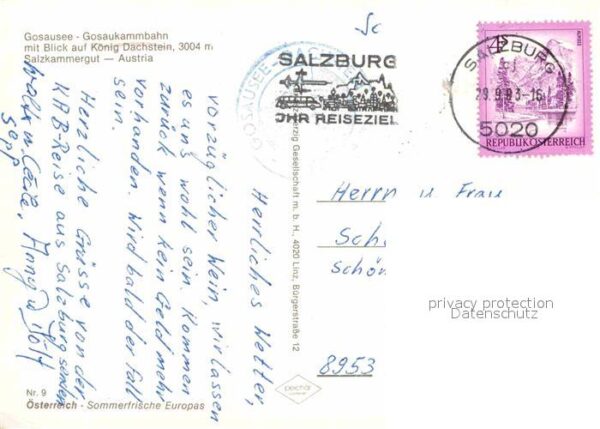 Gosausee - Gosaukammbahn
mit Blick auf König Dachstein, 3004 m
Salzkammergut — Austria
Herzliche Grüsse von der
KAB Reise aus Salzburg senden
Anny u.
Sepp
Herrliches Wetter,
vorzüglicher Wein, wir lassen
es uns wohl sein. Kommen
zurück wenn kein Geld mehr
vorhanden. Wird bald der Fall
sein.
Nr. 9
Österreich - Sommerfrische Europas
GOSAUSEE
SALZBURG
IHR REISEZIEL
SALZBURG
29.9.83-16
5020
S4
REPUBLIK ÖSTERREICH
Gesellschaft m. b. H., 4020 Linz, Bürgerstraße 12
Herrn u. Frau
Sch
Schön
8953
privacy protection
Datenschutz